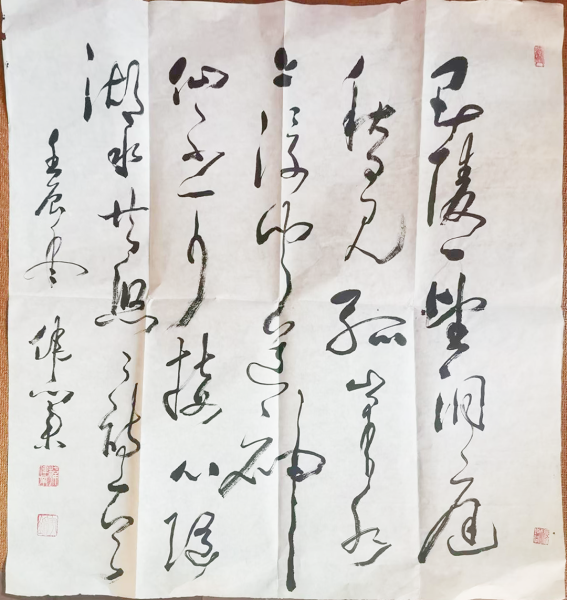 巴陵一望洞庭
秋日见孤峰水
上浮闻道神
仙不可接心随
湖水共悠悠诗一首
壬辰冬